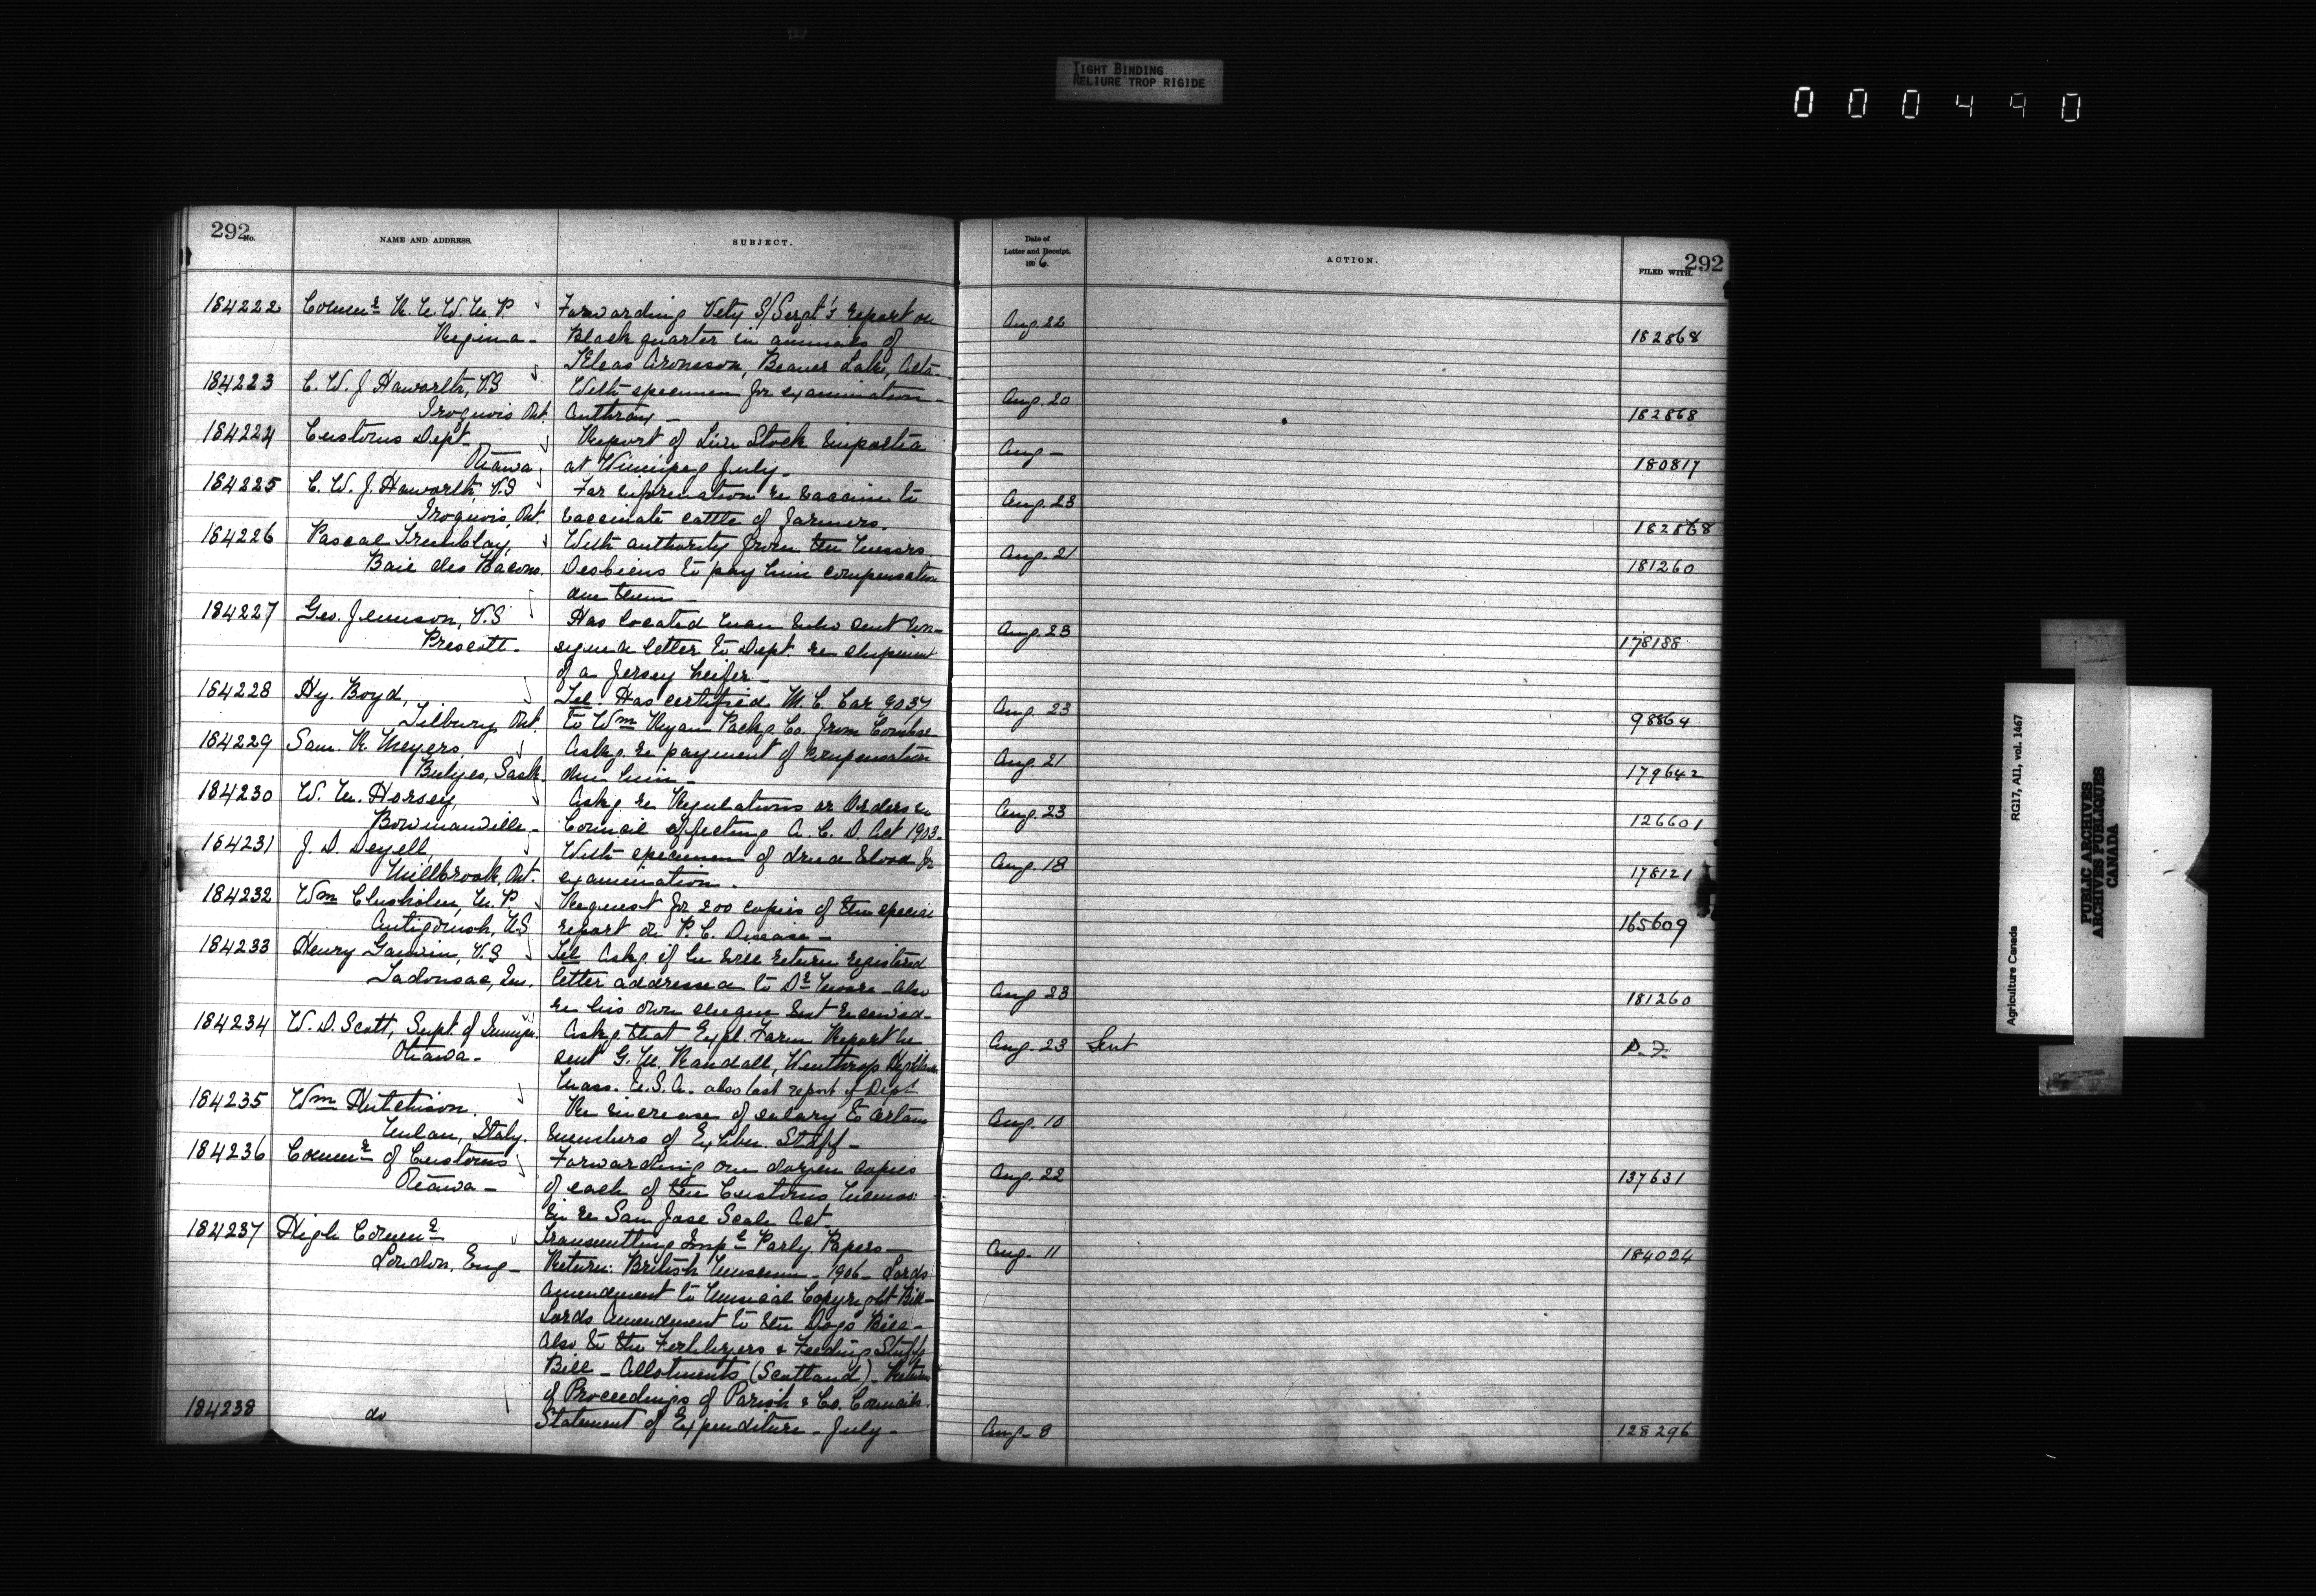 TIGHT BINDING
RELIURE TROP RIGIDE
000490
292 No.
NAME AND ADDRESS.
SUBJECT.
184222 Commr R.N.W.M.P Forwarding Vety S/Sergt's report on
Regina - Black quarter in animals of
Aronsson, Beaver Lake, Alta -
184223 C. W. J. Haworth, V.S With specimen for examination -
Iroquois Ont. Anthrax -
184224 Customs Dept - Report of Live Stock imported
Ottawa. at Winnipeg July -
184225 C. W. J. Haworth, V.S For information re vaccine to
Iroquois, Ont. vaccinate cattle of farmers.
184226 Pascal Tremblay, With authority from the Messrs
Baie des Bacons. Desbiens to pay him compensation
due them -
184227 Geo. Jemison, V.S Has located man who sent un-
Prescott - signed letter to Dept. re shipment
of a Jersey heifer -
184228 Hy. Boyd, Tel. Has certified M. C. Car 9037
Tilbury, Ont. to Wm Ryan Packg Co. from Comber -
184229 Sam. R Meyers Askg re payment of compensation
Bulyea, Sask. due him -
184230 W. M. Horsey, Askg re Regulations or Orders in
Bowmanville - Council affecting A. C. D. Act 1903 -
184231 J. D. Deyell, With specimen of dried blood for
Millbrook, Ont. examination.
184232 Wm Chisholm, M.P. Request for 200 copies of the special
Antigonish, N.S report on P. C. Disease -
184233 Henry Gauvin, V.S Tel Askg if he will return registered
Tadousac, Que. letter addressed to Dr Moore - Also
re his own cheque not received -
184234 W. D. Scott, Supt. of Immign. Askg that Expl. Farm Report be
Ottawa - sent G. M. Randall, Winthrop Highlands
Mass. U.S.A. also last report of Dept
184235 Wm Hutchison. Re increase of salary to certain
Milan, Italy. members of Exhbn. Staff -
184236 Commr of Customs Forwarding one dozen copies
Ottawa - of each of the Customs Memos:
in re San Jose Scale Act
184237 High Commr Transmitting Impl Parly Papers -
London, Eng - Return: British Museum - 1906 - Lords
Amendment to Musical Copyright Bill -
Lords Amendment to the Dogs Bill -
Also to the Fertilizers & Feeding Stuffs
Bill - Allotments (Scotland) - Return
of Proceedings of Parish & Co. Councils.
184238 do Statement of Expenditure - July -
Date of
Letter and Receipt.
190 6.
ACTION.
FILED WITH.
292
Aug. 22 182868
Aug. 20 182868
Aug - 180817
Aug. 23 182868
Aug. 21 181260
Aug. 23 178188
Aug. 23 98864
Aug. 21 179642
Aug. 23 126601
Aug. 18 178121
165609
Aug 23 181260
Aug. 23 Sent P. F.
Aug. 10
Aug. 22 137631
Aug. 11 184024
Aug. 8 128296
Agriculture Canada RG17, AII, vol. 1467
PUBLIC ARCHIVES
ARCHIVES PUBLIQUES
CANADA